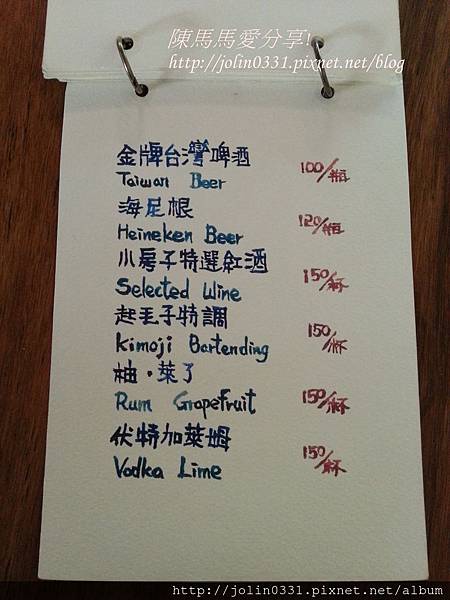 陳馬馬愛分享!
http://jolin0331.pixnet.net/blog
金牌台灣啤酒 100/瓶
Taiwan Beer
海尼根 120/瓶
Heineken Beer
小房子特選紅酒 150/杯
Selected Wine
起毛子特調 150/杯
Kimoji Bartending
柚·萊了 150/杯
Rum Grapefruit
伏特加萊姆 150/杯
Vodka Lime
http://jolin0331.pixnet.net/album